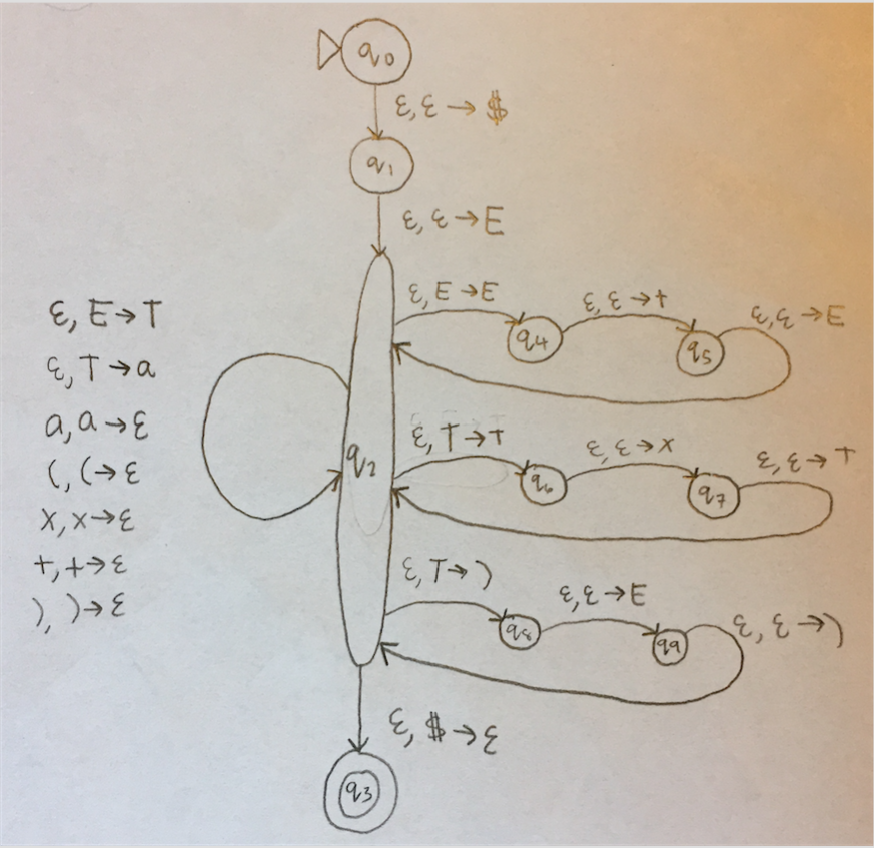 q0
ε, ε → $
q1
ε, ε → E
ε, E → T
ε, T → a
a, a → ε
(, ( → ε
x, x → ε
+, + → ε
), ) → ε
q2
ε, E → E
q4
ε, ε → +
q5
ε, ε → E
ε, T → T
q6
ε, ε → x
q7
ε, ε → T
ε, T → )
q8
ε, ε → E
q9
ε, ε → )
ε, $ → ε
q3